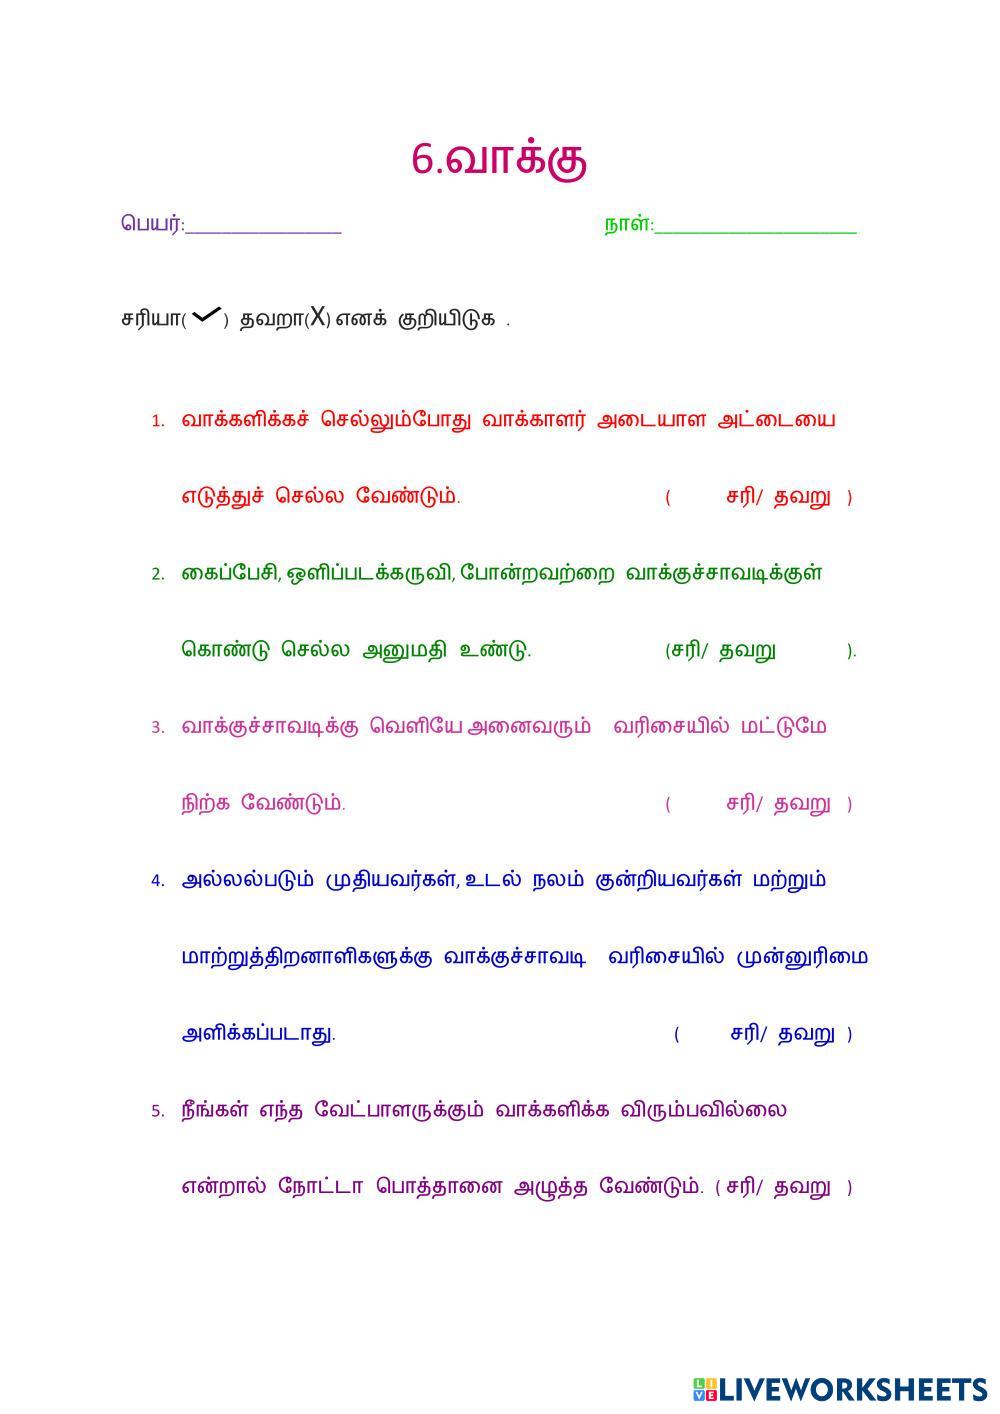 6.வாக்கு
பெயர்:_________________ நாள்:______________________
சரியா(✓) தவறா(X) எனக் குறியிடுக .
1. வாக்களிக்கச் செல்லும்போது வாக்காளர் அடையாள அட்டையை
எடுத்துச் செல்ல வேண்டும். ( சரி/ தவறு )
2. கைப்பேசி, ஒளிப்படக்கருவி, போன்றவற்றை வாக்குச்சாவடிக்குள்
கொண்டு செல்ல அனுமதி உண்டு. (சரி/ தவறு ).
3. வாக்குச்சாவடிக்கு வெளியே அனைவரும் வரிசையில் மட்டுமே
நிற்க வேண்டும். ( சரி/ தவறு )
4. அல்லல்படும் முதியவர்கள், உடல் நலம் குன்றியவர்கள் மற்றும்
மாற்றுத்திறனாளிகளுக்கு வாக்குச்சாவடி வரிசையில் முன்னுரிமை
அளிக்கப்படாது. ( சரி/ தவறு )
5. நீங்கள் எந்த வேட்பாளருக்கும் வாக்களிக்க விரும்பவில்லை
என்றால் நோட்டா பொத்தானை அழுத்த வேண்டும். ( சரி/ தவறு )
LIVE LIVEWORKSHEETS